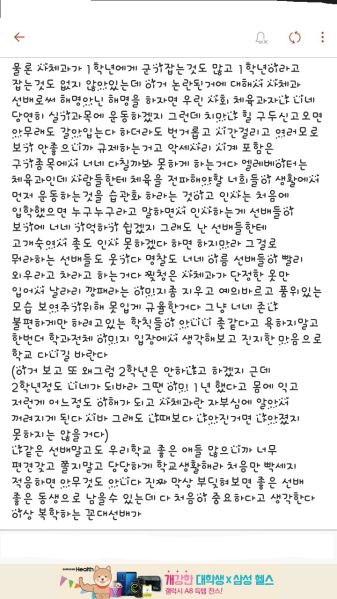 물론 사체과가 1학년에게 군기잡는것도 많고 1학년이라고
잡는것도 없지 않아있는데 이거 논란된거에 대해서 사체과
선배로써 해명아닌 해명을 하자면 우린 사회 체육과자나 니네
당연히 실기과목에 운동하겠지 그런데 치마나 힐 구두신고오면
아무래도 갈아입는다 하더라도 번거롭고 시간걸리고 여러모로
보기 안좋으니까 규제하는거고 악세사리 시계 포함은
구기종목에서 너네 다칠까봐 못하게 하는거다 엘레베이터는
체육과인데 사람들한테 체육을 전파해야할 너희들이 생활에서
먼저 운동하는것을 습관화 하라는 것이고 인사는 처음에
입학했으면 누구누구라고 말하면서 인사하는게 선배들이
보기에 너네 기억하기 쉽겠지 그래도 난 선배들한테
고개숙여서 좋도 인사 못하겠다 하면 하지마라 그걸로
뭐라하는 선배들도 웃기다 명찰도 너네 이름 선배들이 빨리
외우라고 차라고 하는거다 찢청은 사체과가 단정한 옷만
입어서 날라리 깡패라는 이미지좀 지우고 예의바르고 품위있는
모습 보여주기위해 못입게 규율한거다 그냥 너네 존나
불편하게만 하려고있는 학칙들이 아니니 좆같다고 욕하지말고
한번더 학과전체 이미지 입장에서 생각해보고 진지한 마음으로
학교 다니길 바란다
(이거 보고 또 왜그럼 2학년은 안하냐고 하겠지 근데
2학년정도 니네가 되바라 그땐 이미 1년 했다고 몸에 익고
저런게 어느정도 이해가 되고 사체과란 자부심에 알아서
꺼려지게 된다 시바 그래도 나때보다 나아진거면 나아졌지
못하지는 않을거다)
나같은 선배말고도 우리학교 좋은 애들 많으니까 너무
편견갖고 쫄지말고 당당하게 학교생활해라 처음만 빡세지
적응하면 아무것도 아니다 진짜 막상 부딪혀보면 좋은 선배
좋은 동생으로 남을수 있는데 다 처음이 중요하다고 생각한다
이상 복학하는 꼰대선배가
SAMSUNG Health
개강한 대학생 X 삼성 헬스
갤럭시 A8 득템 찬스!